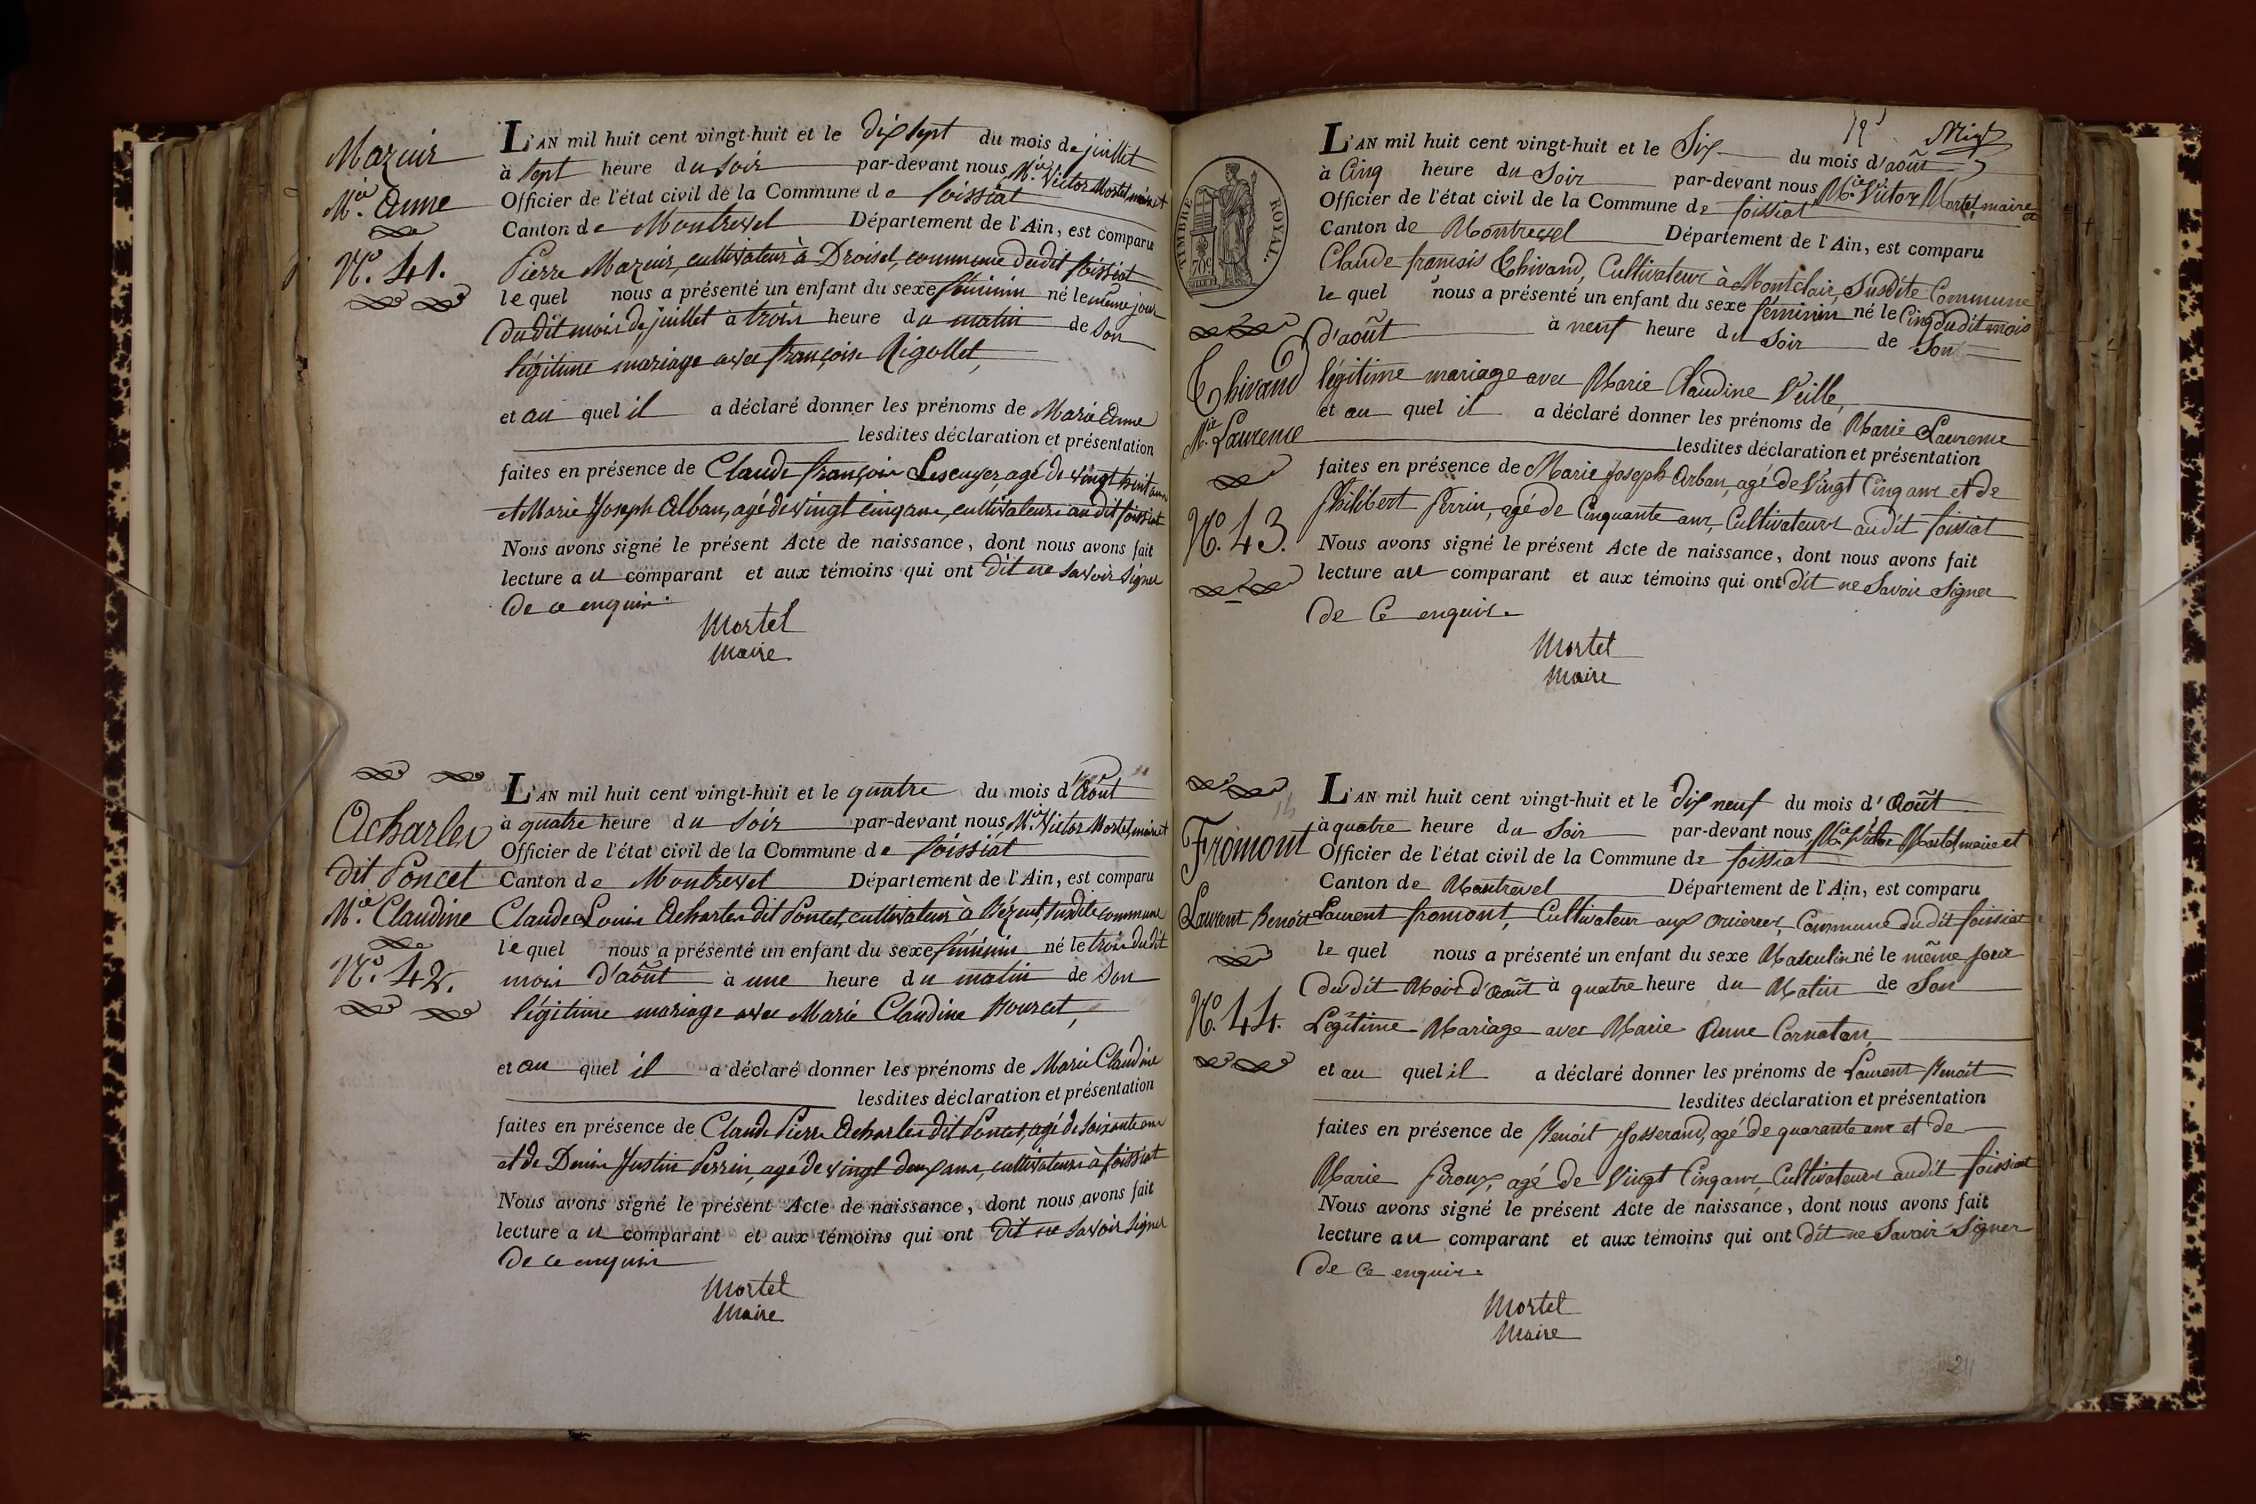 Mazuir
Mie Anne
N.º 41.
L'AN mil huit cent vingt-huit et le dix sept du mois de juillet
à sept heure du soir par-devant nous Mie Victor Mortel, maire et
Officier de l'état civil de la Commune de foissiat
Canton de Montrevel Département de l'Ain, est comparu
Pierre Mazuir, cultivateur à Droisel, commune dudit foissiat
le quel nous a présenté un enfant du sexe féminin né le même jour
dudit mois de juillet à trois heure du matin de son
légitime mariage avec françoise Rigollet,
et au quel il a déclaré donner les prénoms de Marie Anne
lesdites déclaration et présentation
faites en présence de Claude françois Lescuyer, agé de vingt huit ans
et Marie Joseph Alban, agé de vingt cinq ans, cultivateurs au dit foissiat
Nous avons signé le présent Acte de naissance, dont nous avons fait
lecture au comparant et aux témoins qui ont dit ne savoir signer
de ce enquis.
Mortel
Maire
Acharles
dit Poncet
Mie Claudine
N.º 42.
L'AN mil huit cent vingt-huit et le quatre du mois d'Août
à quatre heure du soir par-devant nous Mie Victor Mortel, maire et
Officier de l'état civil de la Commune de foissiat
Canton de Montrevel Département de l'Ain, est comparu
Claude Louis Acharles dit Poncet, cultivateur à susdite commune
le quel nous a présenté un enfant du sexe féminin né le trois du dit
mois d'août à une heure du matin de son
légitime mariage avec Marie Claudine Bourcet,
et au quel il a déclaré donner les prénoms de Marie Claudine
lesdites déclaration et présentation
faites en présence de Claude Pierre Acharles dit Poncet, agé de soixante ans
et de Denis Justin Perrin, agé de vingt deux ans, cultivateurs à foissiat
Nous avons signé le présent Acte de naissance, dont nous avons fait
lecture au comparant et aux témoins qui ont dit ne savoir signer
de ce enquis
Mortel
Maire
TIMBRE ROYAL.
70c
Thivand
Mie Laurence
N.º 43.
L'AN mil huit cent vingt-huit et le Six du mois d'août
à Cinq heure du Soir par-devant nous Mie Victor Mortel, maire et
Officier de l'état civil de la Commune de foissiat
Canton de Montrevel Département de l'Ain, est comparu
Claude francois Thivand, Cultivateur à Montclair, Susdite Commune
le quel nous a présenté un enfant du sexe féminin né le Cinq dudit mois
d'août à neuf heure du Soir de Son
légitime mariage avec Marie Claudine Veille,
et au quel il a déclaré donner les prénoms de Marie Laurence
lesdites déclaration et présentation
faites en présence de Marie Joseph Arban, agé de Vingt Cinq ans et de
Philibert Perrin, agé de Cinquante ans, Cultivateurs audit foissiat
Nous avons signé le présent Acte de naissance, dont nous avons fait
lecture au comparant et aux témoins qui ont dit ne Savoir Signer
de Ce enquis.
Mortel
Maire
Fromont
Laurent Benoit
N.º 44.
L'AN mil huit cent vingt-huit et le dix neuf du mois d'Août
à quatre heure du Soir par-devant nous Mie Victor Mortel, maire et
Officier de l'état civil de la Commune de foissiat
Canton de Montrevel Département de l'Ain, est comparu
Laurent fromont, Cultivateur aux Commune du dit foissiat
le quel nous a présenté un enfant du sexe Masculin né le même jour
dudit Mois d'Août à quatre heure du Matin de Son
Légitime Mariage avec Marie Anne Cornaton,
et au quel il a déclaré donner les prénoms de Laurent Benoit
lesdites déclaration et présentation
faites en présence de Benoit Josserand, agé de quarante ans et de
Marie Piroux, agé de Vingt Cinq ans, Cultivateurs audit foissiat
Nous avons signé le présent Acte de naissance, dont nous avons fait
lecture au comparant et aux témoins qui ont dit ne Savoir Signer
de Ce enquis.
Mortel
Maire